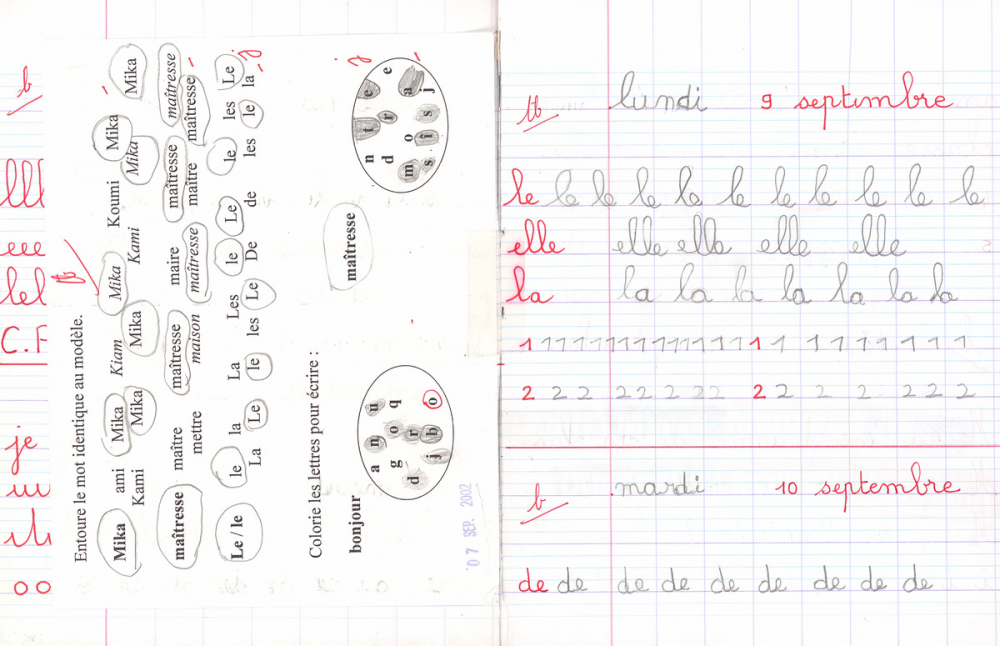 b
lll
eee
lel
C.F
je
uu
oo
Entoure le mot identique au modèle.
Mika ami Mika Kiam Mika Koumi Mika Mika
Kami Mika Mika Kami Mika
maîtresse maître maîtresse maire maîtresse maîtresse
mettre maison maîtresse maître maîtresse
Le / le le la La Les le Le le les Le
La Le le les Le De de les le la
Colorie les lettres pour écrire :
bonjour maîtresse
a n u
g o q
d r
j b o
n t e
d r e
m o a
s i s j
07 SEP. 2002
tb lundi 9 septembre
le le le le le le le le le le le
elle elle elle elle elle
la la la la la la la la
1 1 1 1 1 1 1 1 1 1 1 1 1 1 1 1 1 1 1 1 1 1
2 2 2 2 2 2 2 2 2 2 2 2 2 2 2
b mardi 10 septembre
de de de de de de de de de